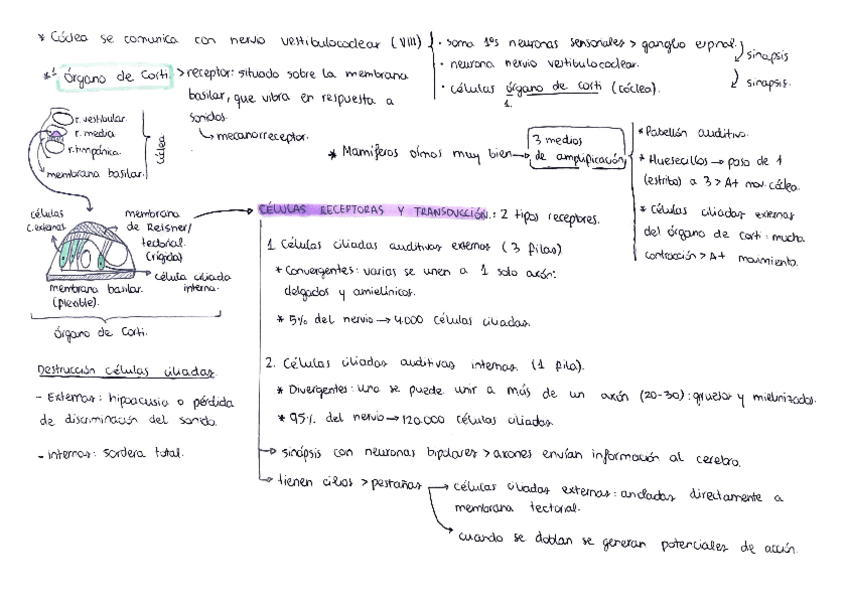 * Cóclea se comunica con nervio vestibulococlear (VIII)
· soma 1os neuronas sensoriales > ganglio espiral.
· neurona nervio vestibulococlear.
· células órgano de Corti (cóclea).
1.
sinapsis
sinapsis.
*1 Órgano de Corti. > receptor: situado sobre la membrana
basilar, que vibra en respuesta a
sonidos.
mecanorreceptor.
r. vestibular.
r. media
r. timpánica.
membrana basilar.
cóclea
* Mamíferos oímos muy bien → 3 medios
de amplificación
* Pabellón auditivo.
* Huesecillos → paso de 1
(estribo) a 3 > A+ mov. cóclea.
* Células ciliadas externas
del órgano de Corti: mucha
contracción > A+ movimiento.
células
c. externas
membrana
de Reisner/
tectorial.
(rígida)
célula ciliada
interna.
membrana basilar
(pleable).
órgano de Corti.
CÉLULAS RECEPTORAS Y TRANSDUCCIÓN.: 2 tipos receptores.
1 Células ciliadas auditivas externas (3 filas)
* Convergentes: varias se unen a 1 solo axón:
delgados y amielínicos.
* 5% del nervio → 4.000 células ciliadas.
2. Células ciliadas auditivas internas. (1 fila).
* Divergentes: una se puede unir a más de un axón (20-30): gruesos y mielinizados.
* 95% del nervio → 120.000 células ciliadas.
→ sinápsis con neuronas bipolares > axones envían información al cerebro.
→ tienen cilios > pestañas → células ciliadas externas: ancladas directamente a
membrana tectorial.
cuando se doblan se generan potenciales de acción.
Destrucción células ciliadas
- Externas: hipoacusia o pérdida
de discriminación del sonido.
- Internas: sordera total.